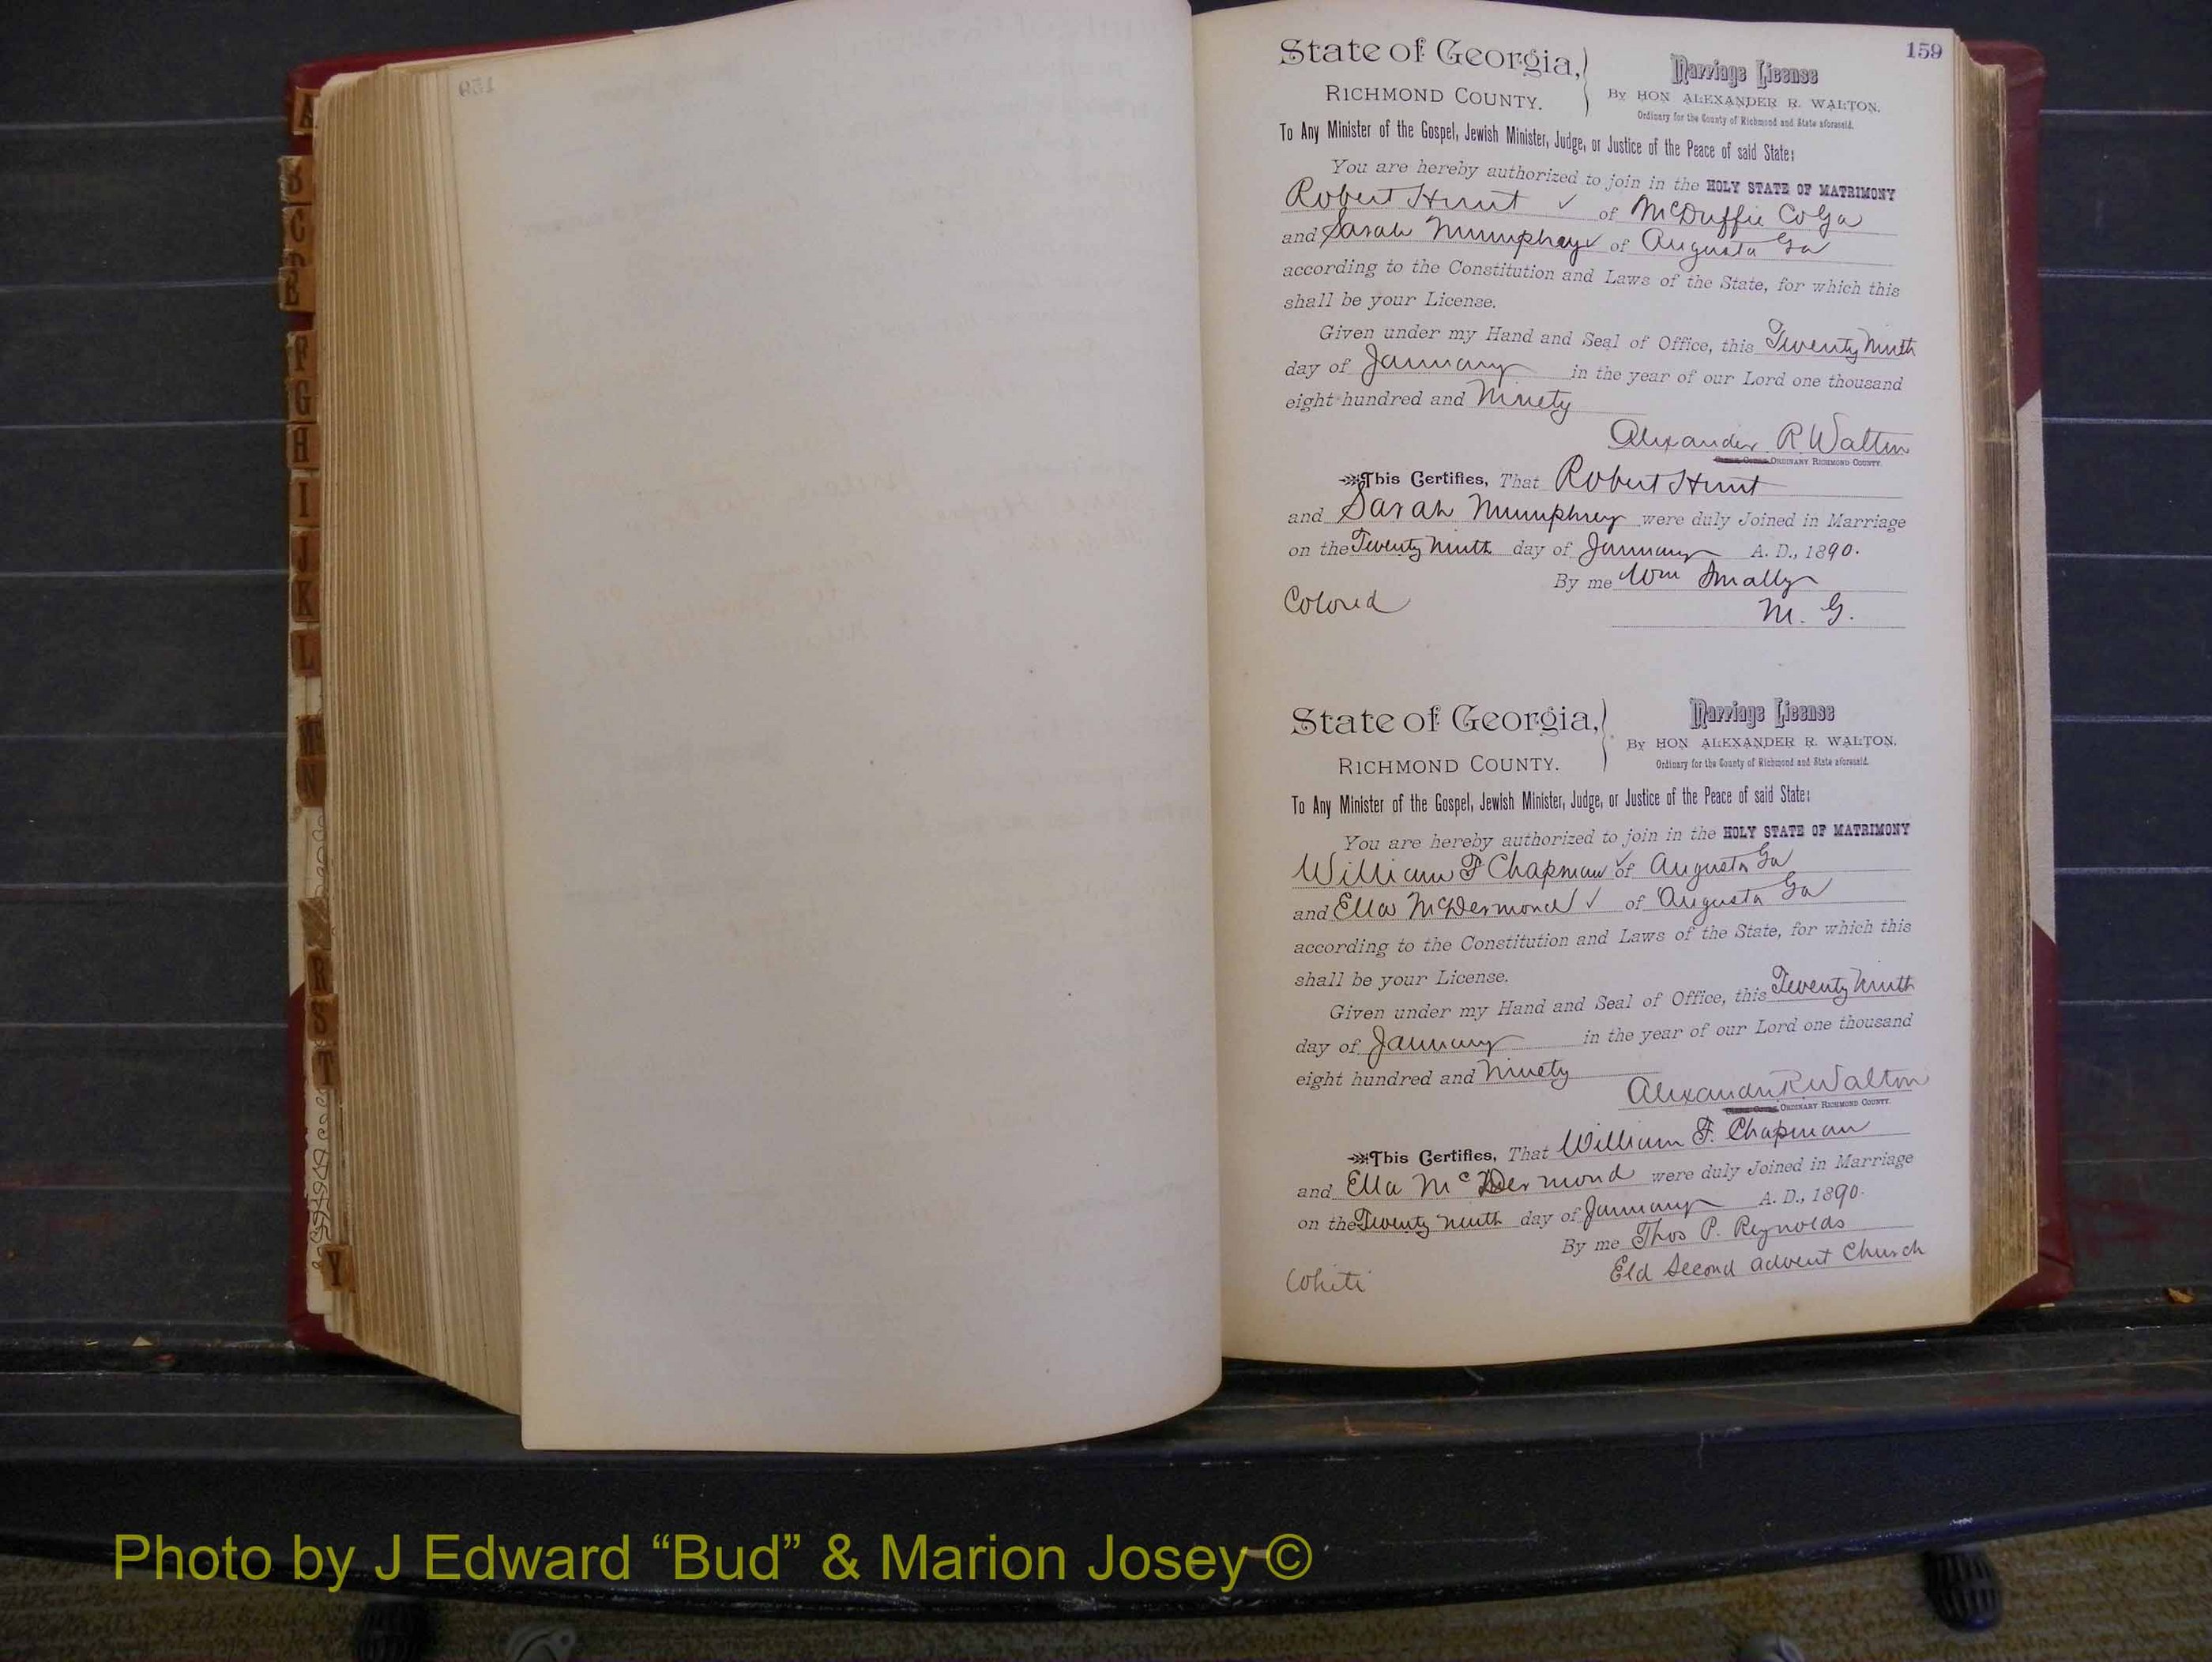 A
B
C
E
F
G
H
I
J
K
L
Mc
N
R
S
T
Y
159
State of Georgia,
RICHMOND COUNTY.
Marriage License
By HON ALEXANDER R. WALTON,
Ordinary for the County of Richmond and State aforesaid.
To Any Minister of the Gospel, Jewish Minister, Judge, or Justice of the Peace of said State:
You are hereby authorized to join in the HOLY STATE OF MATRIMONY
Robert Hunt ✓ of McDuffie Co Ga
and Sarah Mumphrey ✓ of Augusta Ga
according to the Constitution and Laws of the State, for which this
shall be your License.
Given under my Hand and Seal of Office, this Twenty Ninth
day of January in the year of our Lord one thousand
eight hundred and Ninety
Alexander R Walton
ORDINARY RICHMOND COUNTY.
This Certifies, That Robert Hunt
and Sarah Mumphrey were duly Joined in Marriage
on the Twenty Ninth day of January A. D., 1890.
By me Wm Smally
Colored
M. G.
State of Georgia,
RICHMOND COUNTY.
Marriage License
By HON ALEXANDER R. WALTON,
Ordinary for the County of Richmond and State aforesaid.
To Any Minister of the Gospel, Jewish Minister, Judge, or Justice of the Peace of said State:
You are hereby authorized to join in the HOLY STATE OF MATRIMONY
William F Chapman ✓ of Augusta Ga
and Ella McDermond ✓ of Augusta Ga
according to the Constitution and Laws of the State, for which this
shall be your License.
Given under my Hand and Seal of Office, this Twenty Ninth
day of January in the year of our Lord one thousand
eight hundred and Ninety
Alexander R Walton
ORDINARY RICHMOND COUNTY.
This Certifies, That William F. Chapman
and Ella McDermond were duly Joined in Marriage
on the Twenty Ninth day of January A. D., 1890.
By me Thos P. Reynolds
Eld Second Advent Church
White
Photo by J Edward “Bud” & Marion Josey ©